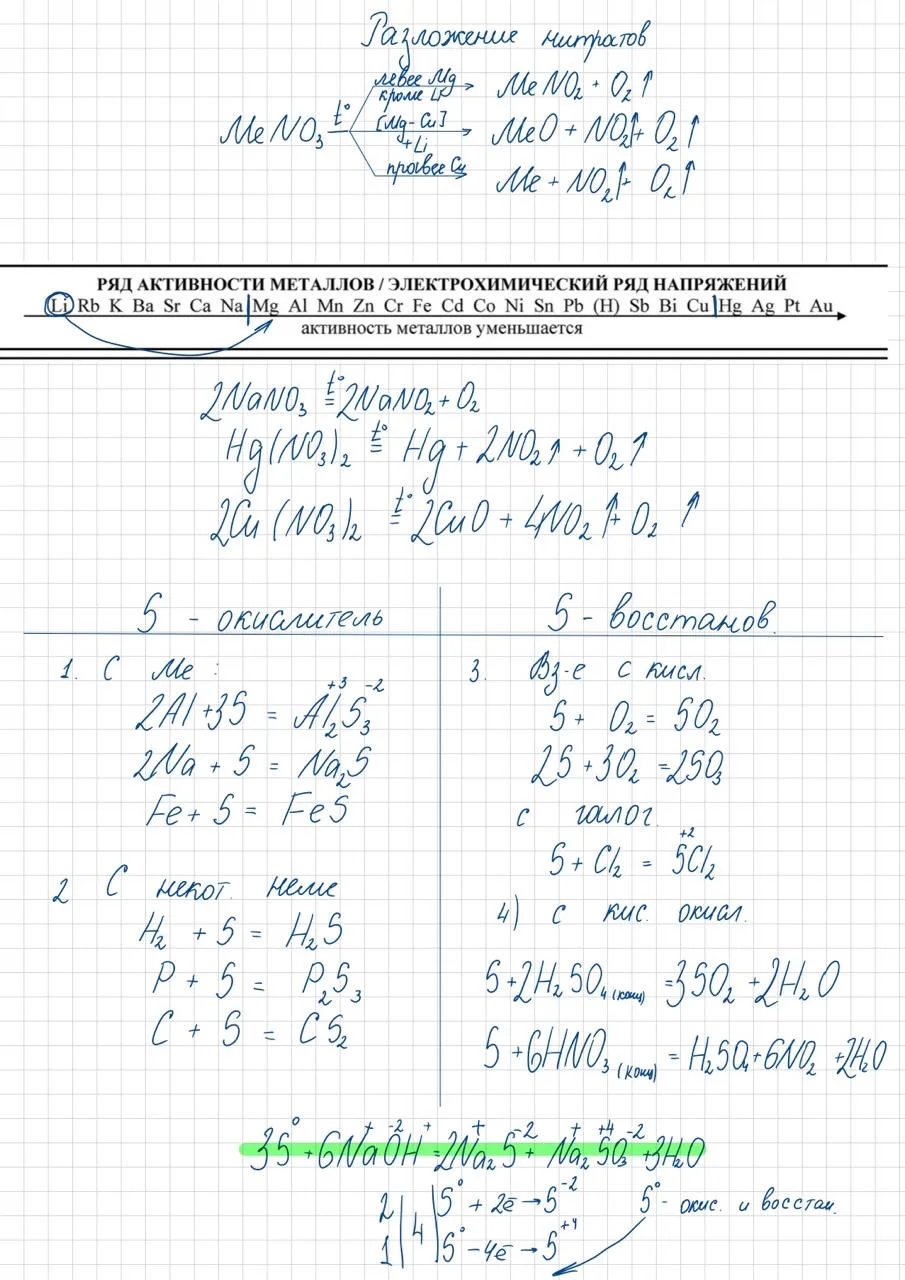 Разложение нитратов
левее Mg
кроме Li
MeNO₂ + O₂↑
MeNO₃ t°
[Mg-Cu]
+Li
MeO + NO₂↑ + O₂↑
правее Cu
Me + NO₂↑ + O₂↑
РЯД АКТИВНОСТИ МЕТАЛЛОВ / ЭЛЕКТРОХИМИЧЕСКИЙ РЯД НАПРЯЖЕНИЙ
Li Rb K Ba Sr Ca Na Mg Al Mn Zn Cr Fe Cd Co Ni Sn Pb (H) Sb Bi Cu Hg Ag Pt Au
активность металлов уменьшается
2NaNO₃ t°= 2NaNO₂ + O₂
Hg(NO₃)₂ t°= Hg + 2NO₂↑ + O₂↑
2Cu(NO₃)₂ t°= 2CuO + 4NO₂↑ + O₂↑
S - окислитель
1. С Me:
2Al + 3S = Al₂⁺³S₃⁻²
2Na + S = Na₂S
Fe + S = FeS
2 С некот. неме
H₂ + S = H₂S
P + S = P₂S₃
C + S = CS₂
S - восстанов.
3. Вз-е с кисл.
S + O₂ = SO₂
2S + 3O₂ = 2SO₃
с галог.
S + Cl₂ = S⁺²Cl₂
4) с кис. окисл.
S + 2H₂SO₄ (конц) = 3SO₂ + 2H₂O
S + 6HNO₃ (конц) = H₂SO₄ + 6NO₂ + 2H₂O
3S⁰ + 6Na⁺O⁻²H⁺ = 2Na₂⁺S⁻² + Na₂⁺S⁺⁴O₃⁻² + 3H₂O
2 | 4 | S⁰ + 2ē → S⁻²
1 | S⁰ - 4ē → S⁺⁴
S⁰ - окис. и восстан.